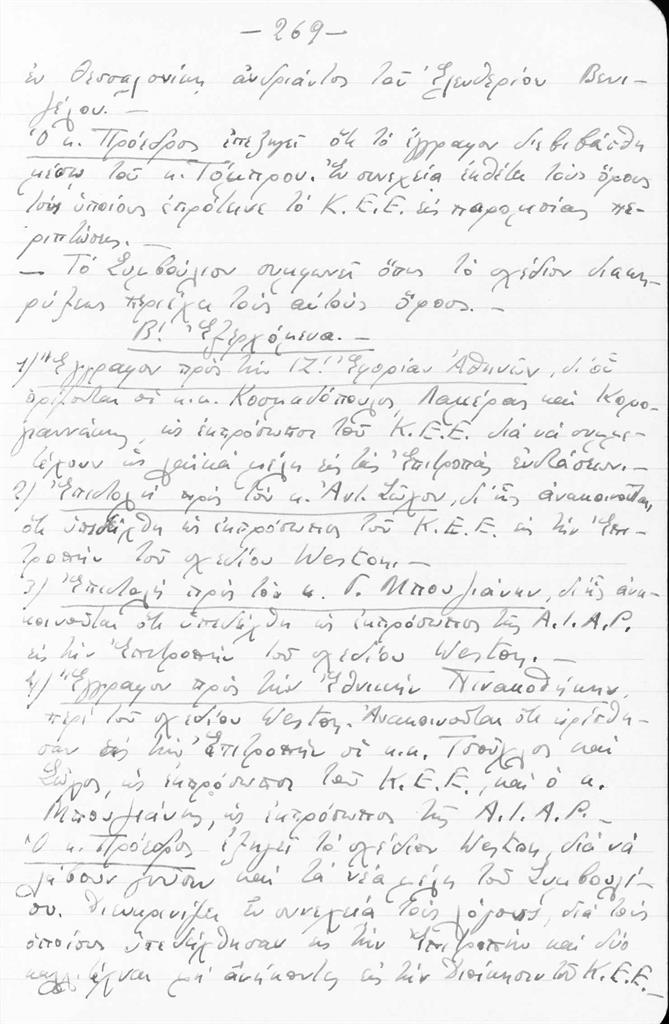 — 269 —
ἐν Θεσσαλονίκῃ ἀνδριάντος τοῦ Ἐλευθερίου Βενι-
ζέλου. —
Ὁ κ. Πρόεδρος ἐπεξηγεῖ ὅτι τὸ ἔγγραφον διεβιβάσθη
μέσῳ τοῦ κ. Τόμπρου. Ἐν συνεχείᾳ ἐκθέτει τοὺς ὅρους
τοὺς ὁποίους ἐπρότεινε τὸ Κ.Ε.Ε. εἰς παρομοίας πε-
ριπτώσεις. —
— Τὸ Συμβούλιον συμφωνεῖ ὅπως τὸ σχέδιον διακη-
ρύξεως περιέχῃ τοὺς αὐτοὺς ὅρους. —
Β! Ἐξερχόμενα. —
1) Ἔγγραφον πρὸς τὴν ΙΖ! Ἐφορίαν Ἀθηνῶν, δι' οὗ
ὁρίζονται οἱ κ.κ. Κοσμαδόπουλος, Λαμέρας καὶ Κορο-
γιαννάκης, ὡς ἐκπρόσωποι τοῦ Κ.Ε.Ε. διὰ νὰ συμμε-
τέχουν ὡς λαϊκὰ μέλη εἰς τὰς Ἐπιτροπὰς ἐνστάσεων. —
2) Ἐπιστολὴ πρὸς τὸν κ. Ἀντ. Σῶχον, δι' ἧς ἀνακοινοῦται,
ὅτι ὑπεδείχθη ὡς ἐκπρόσωπος τοῦ Κ.Ε.Ε. εἰς τὴν Ἐπι-
τροπὴν τοῦ σχεδίου Weston. —
3) Ἐπιστολὴ πρὸς τὸν κ. Γ. Μπουζιάνην, δι' ἧς ἀνα-
κοινοῦται ὅτι ὑπεδείχθη ὡς ἐκπρόσωπος τῆς A.I.A.P.
εἰς τὴν Ἐπιτροπὴν τοῦ σχεδίου Weston. —
4) Ἔγγραφον πρὸς τὴν Ἐθνικὴν Πινακοθήκην,
περὶ τοῦ σχεδίου Weston. Ἀνακοινοῦται ὅτι ὡρίσθη-
σαν εἰς τὴν Ἐπιτροπὴν οἱ κ.κ. Τσούχλος καὶ
Σῶχος, ὡς ἐκπρόσωποι τοῦ Κ.Ε.Ε., καὶ ὁ κ.
Μπουζιάνης, ὡς ἐκπρόσωπος τῆς A.I.A.P. —
Ὁ κ. Πρόεδρος ἐξηγεῖ τὸ σχέδιον Weston, διὰ νὰ
λάβουν γνῶσιν καὶ τὰ νέα μέλη τοῦ Συμβουλί-
ου. Διευκρινίζει ἐν συνεχείᾳ τοὺς λόγους, διὰ τοὺς
ὁποίους ὑπεδείχθησαν εἰς τὴν Ἐπιτροπὴν καὶ δύο
καλλιτέχναι μὴ ἀνήκοντες εἰς τὴν Διοίκησιν τοῦ Κ.Ε.Ε. —